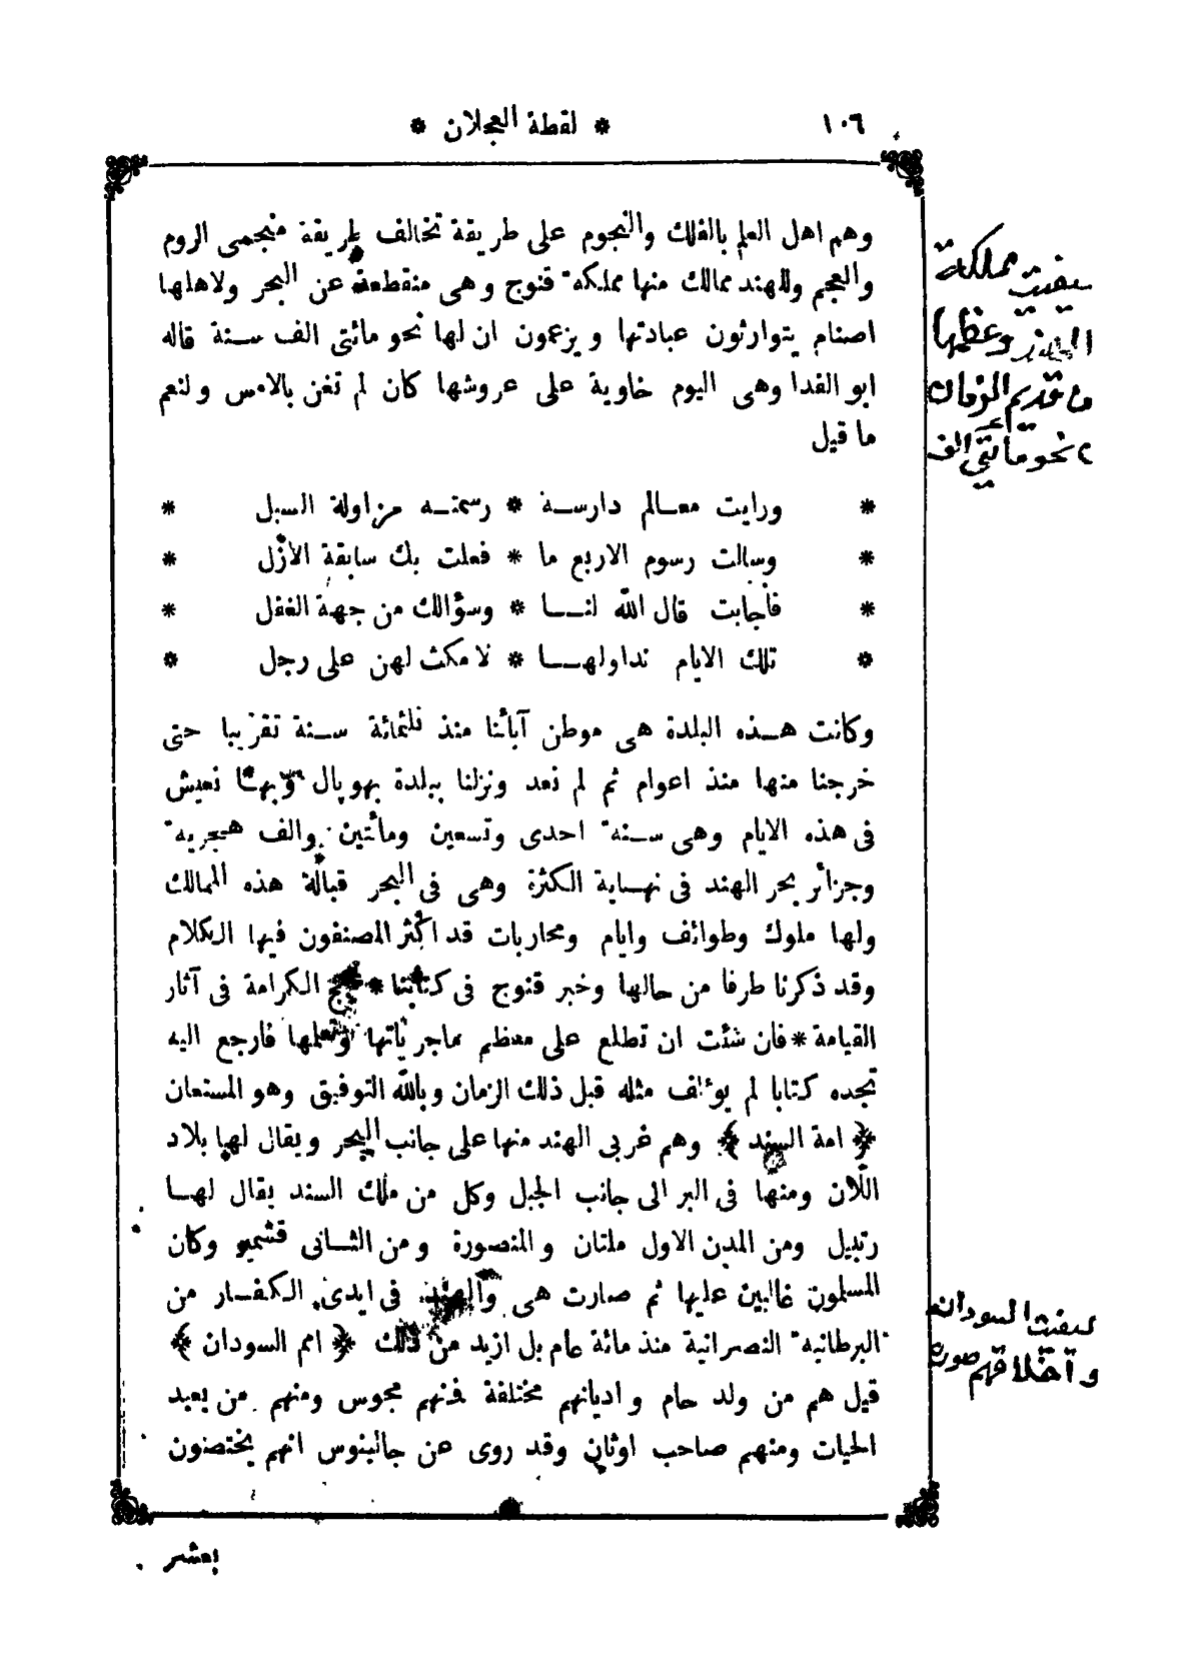 ١٠٦
* لقطة العجلان *
وهم اهل العلم بالفلك والنجوم على طريقة تخالف طريقة منجمى الروم
والعجم وللهند ممالك منها مملكة قنوج وهى منقطعة عن البحر ولاهلها
اصنام يتوارثون عبادتها ويزعمون ان لها نحو مائتى الف سنة قاله
ابو الفدا وهى اليوم خاوية على عروشها كان لم تغن بالامس ولنعم
ما قيل
* ورايت معالم دارسة * رسمته مزاولة السبل *
* وسالت رسوم الاربع ما * فعلت بك سابقة الأزل *
* فأجابت قال الله لنا * وسؤالك من جهة الغفل *
* تلك الايام نداولها * لا مكث لهن على رجل *
وكانت هذه البلدة هى موطن آبائنا منذ ثلثمائة سنة تقريبا حتى
خرجنا منها منذ اعوام ثم لم نعد ونزلنا ببلدة بهوپال وبها نعيش
فى هذه الايام وهى سنة احدى وتسعين ومائتين والف هجرية
وجزائر بحر الهند فى نهاية الكثرة وهى فى البحر قبالة هذه الممالك
ولها ملوك وطوائف وايام ومحاربات قد اكثر المصنفون فيها الكلام
وقد ذكرنا طرفا من حالها وخبر قنوج فى كتابنا * حجج الكرامة فى آثار
القيامة * فان شئت ان تطلع على معظم ماجرياتها وتعلمها فارجع اليه
تجده كتابا لم يؤلف مثله قبل ذلك الزمان وبالله التوفيق وهو المستعان
﴿ امة السند ﴾ وهم غربى الهند منها على جانب البحر ويقال لها بلاد
اللان ومنها فى البر الى جانب الجبل وكل من ملك السند يقال لها
رتبيل ومن المدن الاول ملتان والمنصورة ومن الثانى قشمير وكان
المسلمون غالبين عليها ثم صارت هى والهند فى ايدى الكفار من
البرطانية النصرانية منذ مائة عام بل ازيد من ذلك ﴿ امم السودان ﴾
قيل هم من ولد حام واديانهم مختلفة فمنهم مجوس ومنهم من يعبد
الحيات ومنهم صاحب اوثان وقد روى عن جالينوس انهم يختصون
بعشر
مملكة
الهند وعظمها
من قديم الزمان
نحو مائتي الف
السودان
واخلاقهم